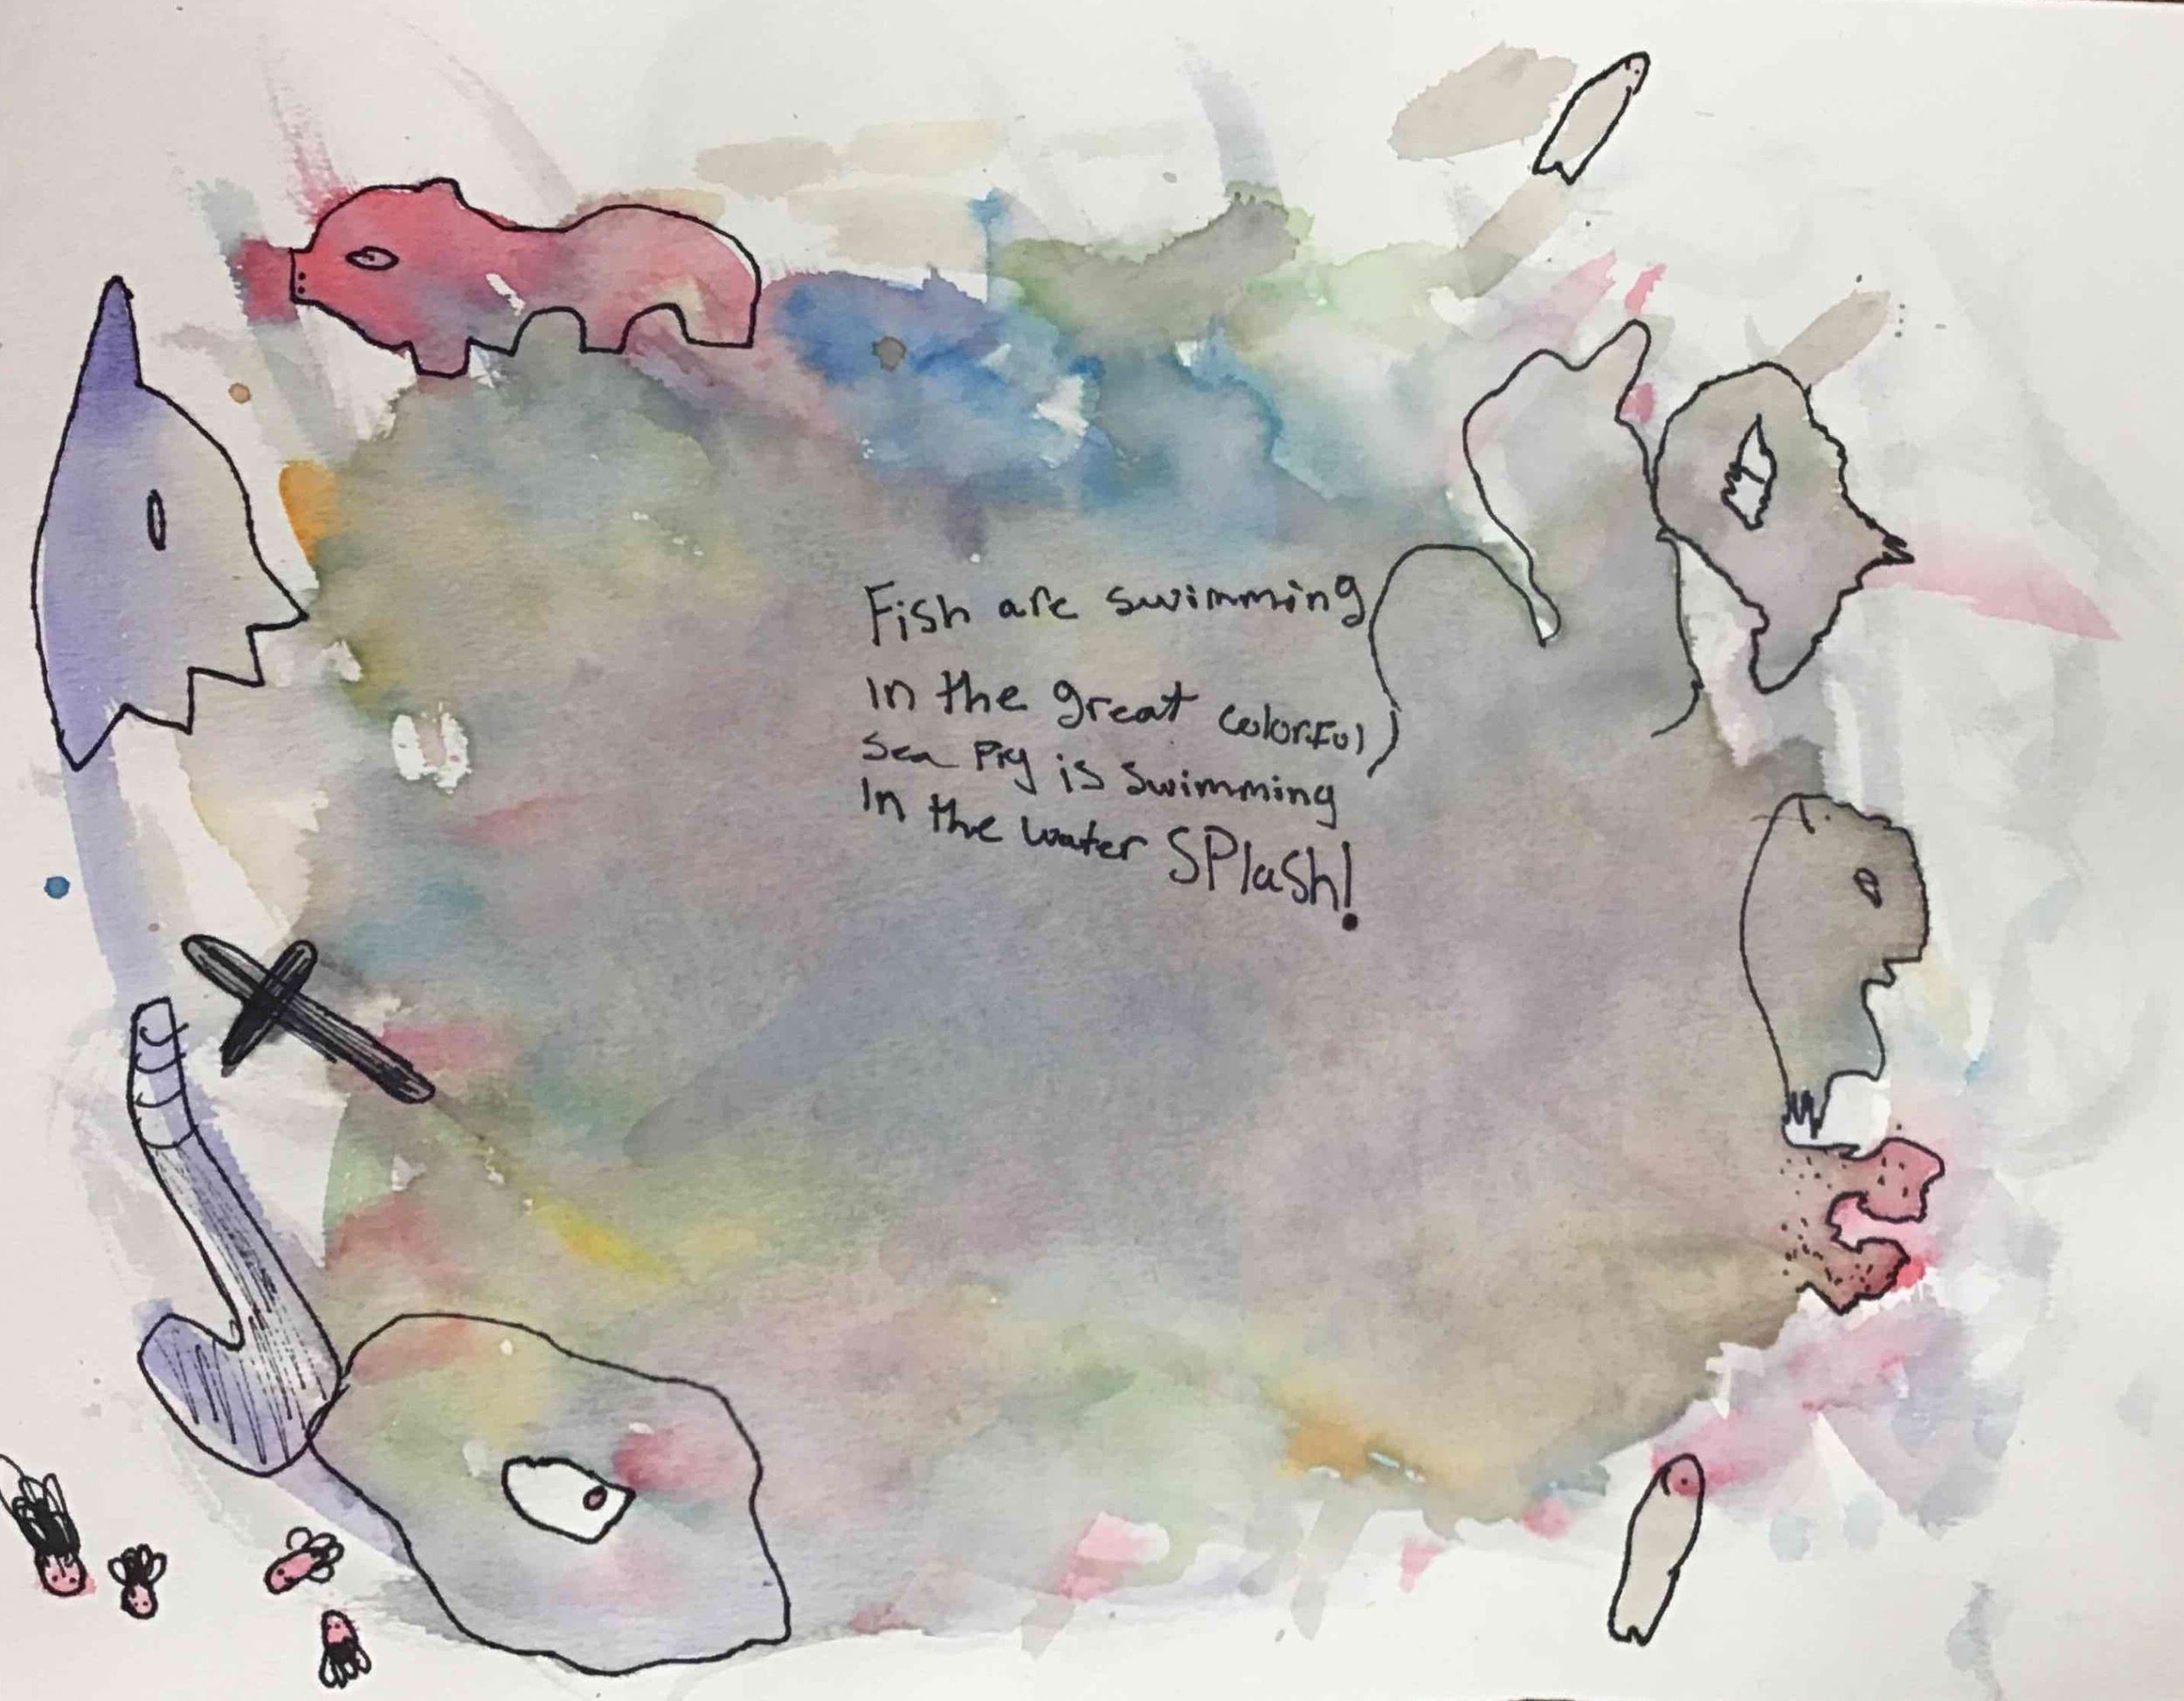 Fish are swimming
in the great colorful
Sea Pig is swimming
In the water SPlaSh!